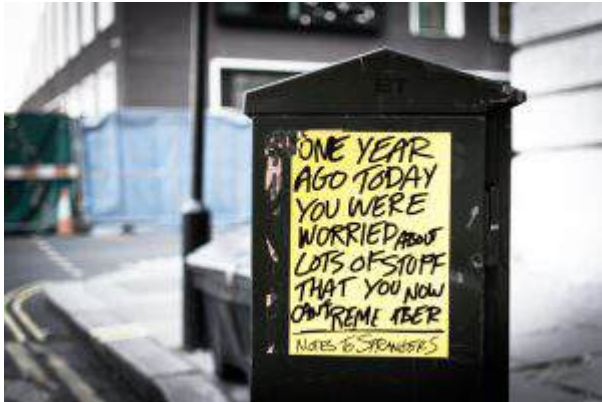 BT
ONE YEAR
AGO TODAY
YOU WERE
WORRIED ABOUT
LOTS OF STOFF
THAT YOU NOW
CAN'T REME BER
NOTES TO STRANGERS